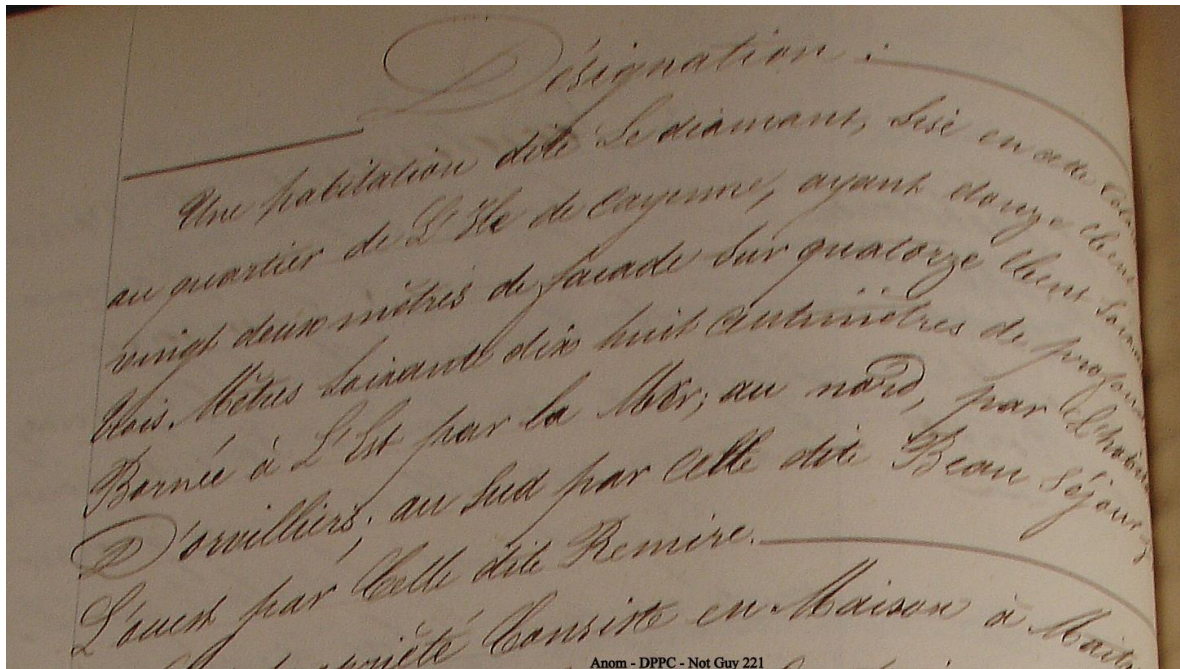 Désignation :
Une habitation dite Le diamant, Sise en cette
au quartier de L'Ile de Cayenne, ayant douze cent
vingt deux mètres de façade sur quatorze Cent
trois Mètres Soixante dix huit Centimètres de
Bornée à L'Est par la Mer; au nord, par
D'orvilliers, au Sud par Celle dite Beau Séjour,
L'ouest par Celle dite Remire.
Consiste en Maison à
Anom - DPPC - Not Guy 221